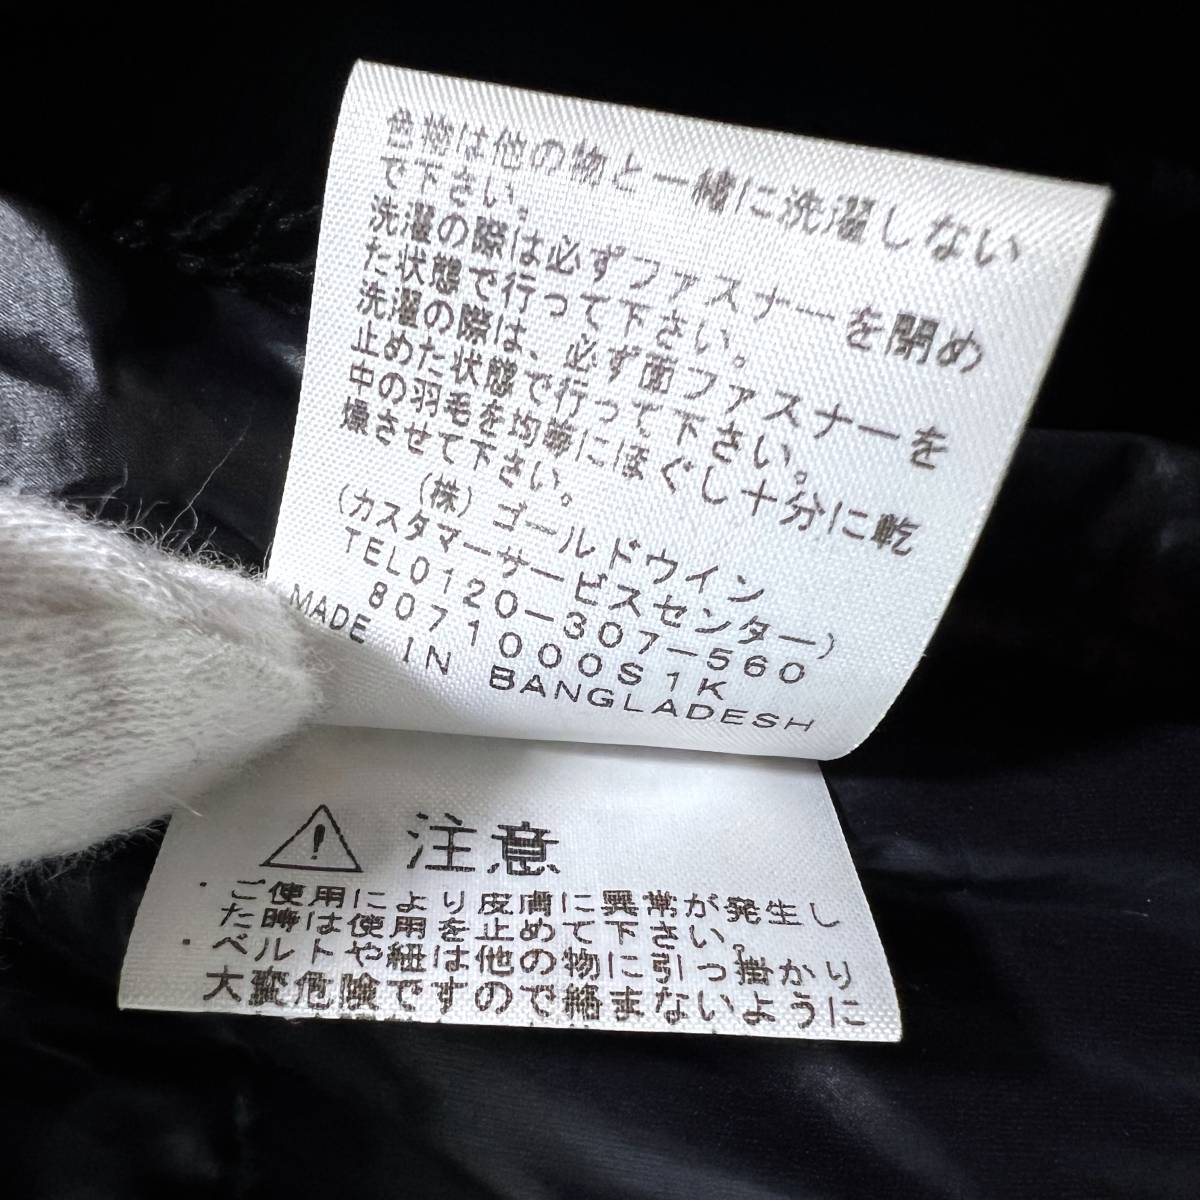 色物は他の物と一緒に洗濯しない
で下さい。
洗濯の際は必ずファスナーを閉め
た状態で行って下さい。
洗濯の際は、必ず面ファスナーを
止めた状態で行って下さい。
中の羽毛を均等にほぐし十分に乾
燥させて下さい。
(株)ゴールドウイン
(カスタマーサービスセンター)
TEL0120-307-560
8071000S1K
MADE IN BANGLADESH
注意
・ご使用により皮膚に異常が発生し
た時は使用を止めて下さい。
・ベルトや紐は他の物に引っ掛かり
大変危険ですので絡まないように